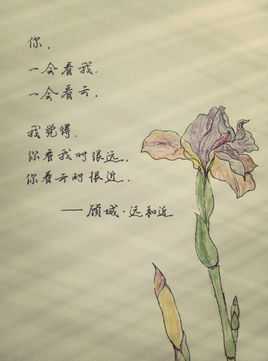 你，
一会看我.
一会看云.
我觉得.
你看我时很远.
你看云时很近.
——顾城·远和近